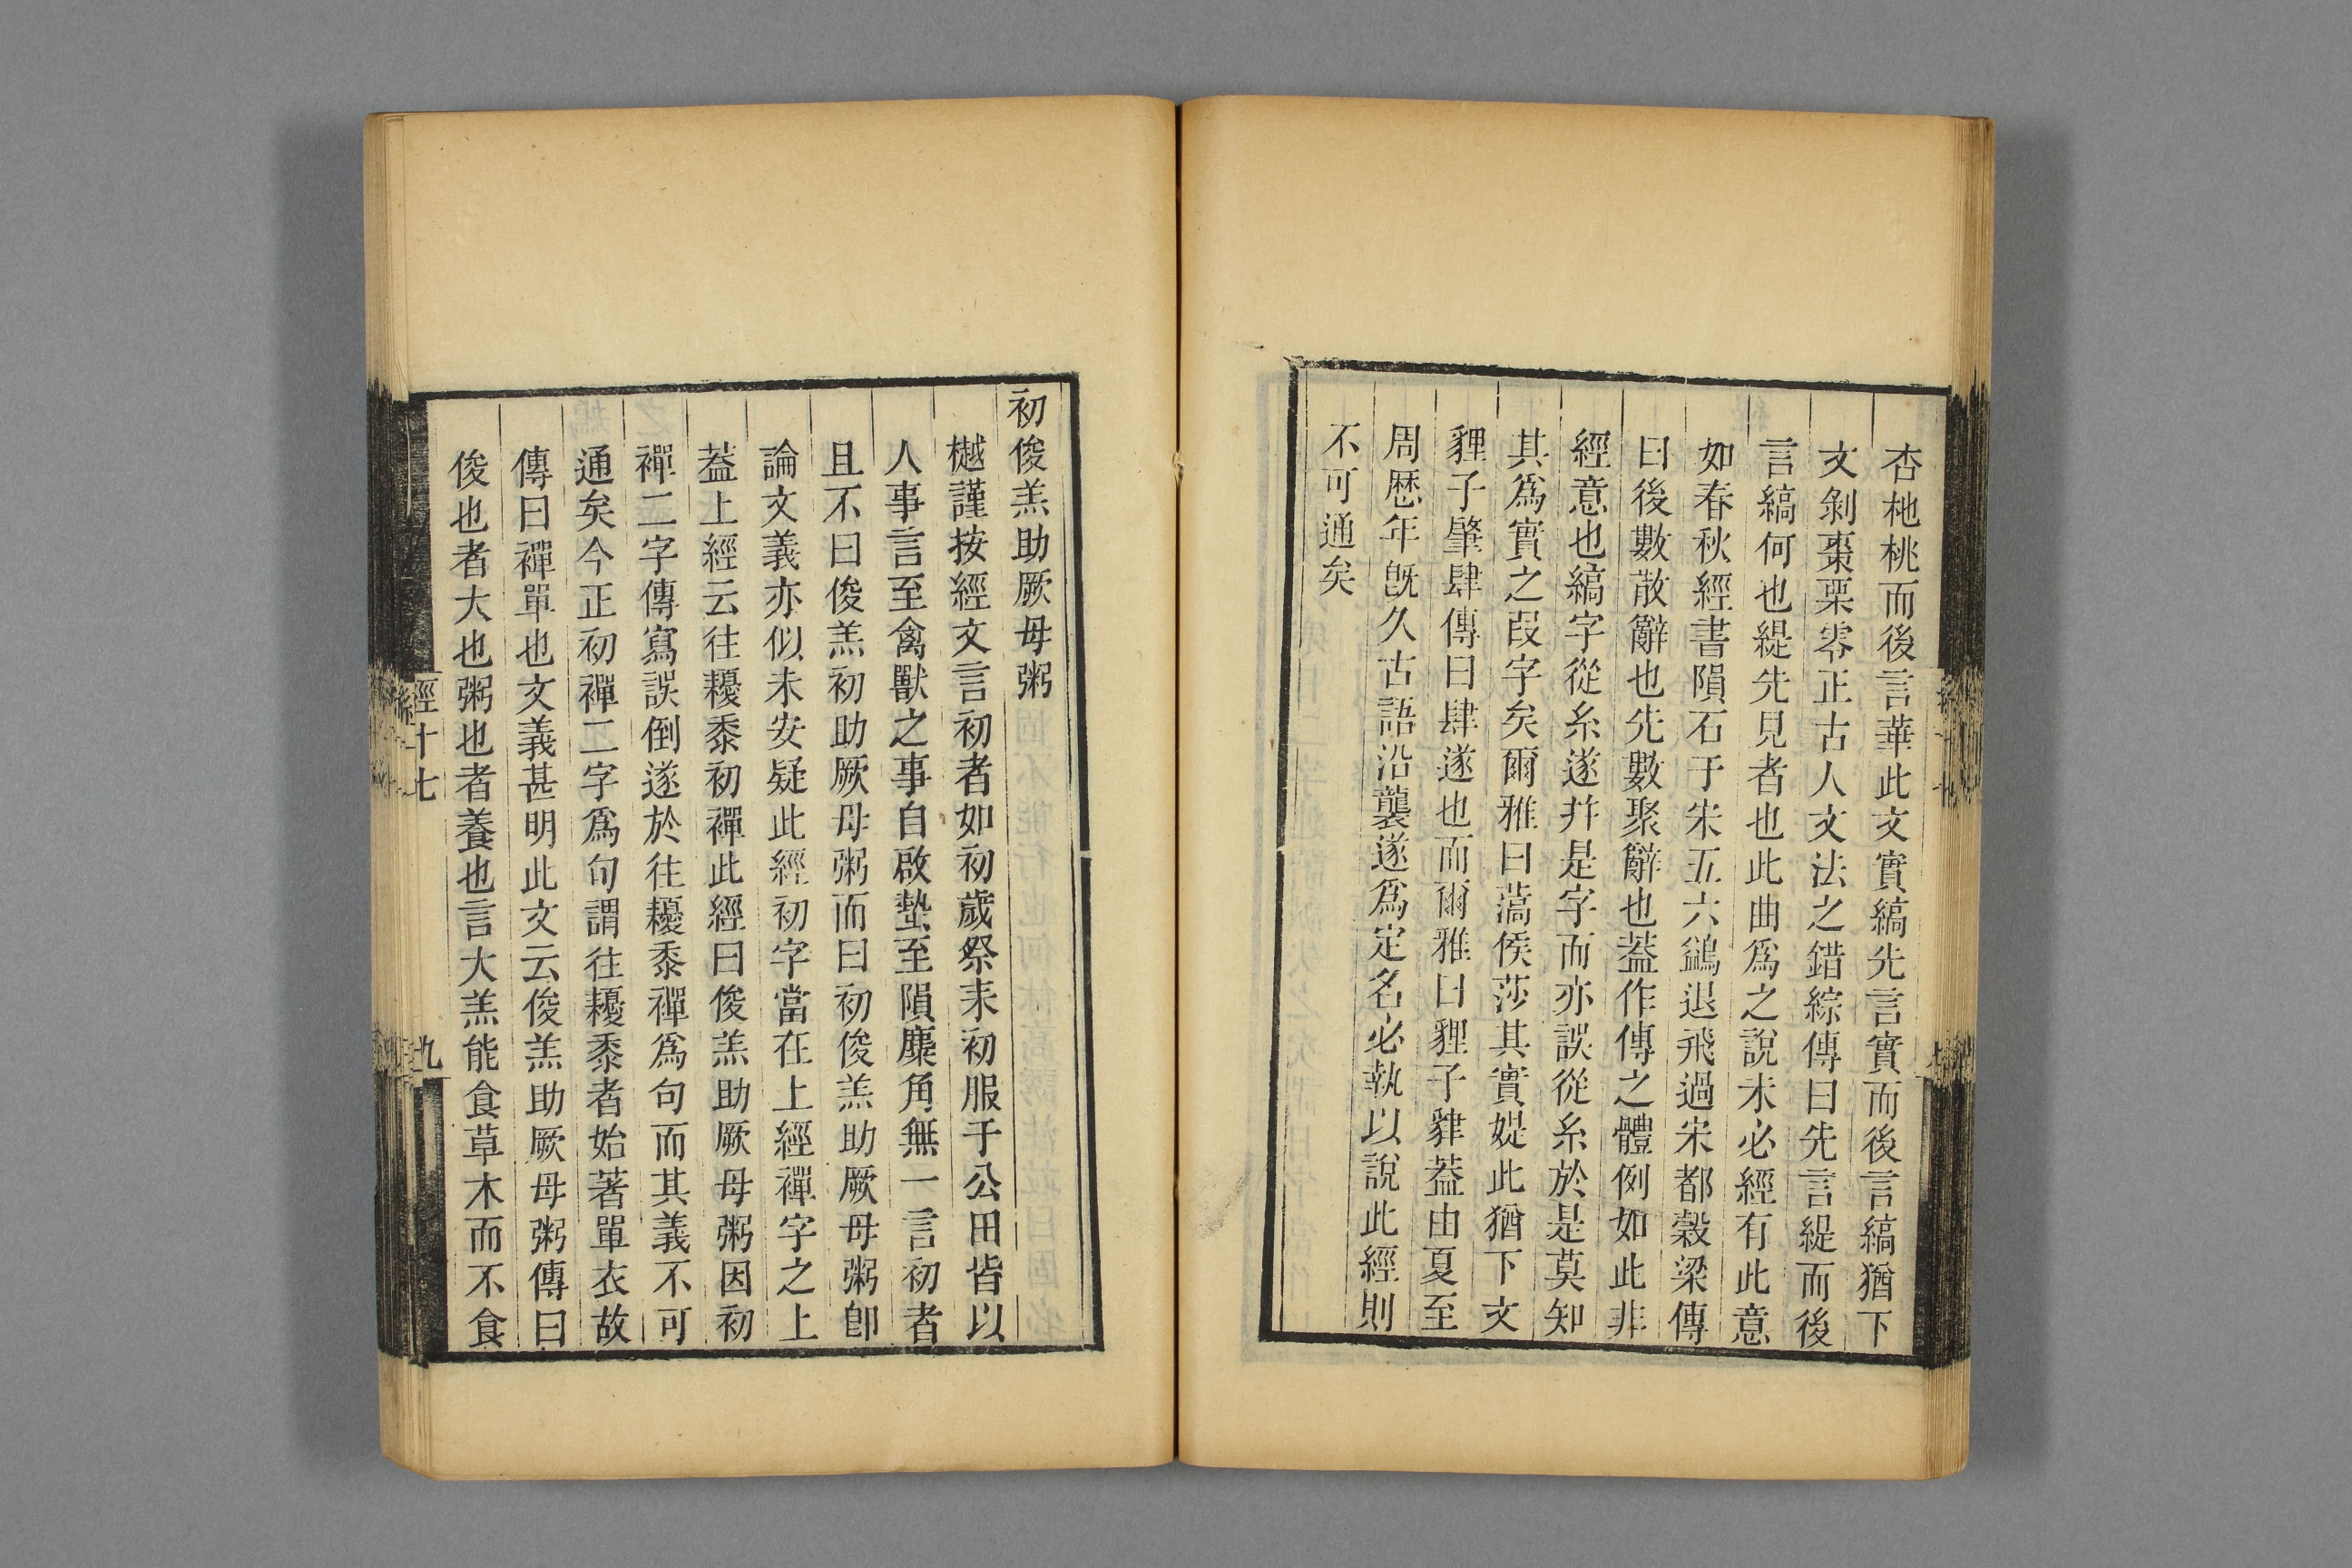 杏杝桃而後言華此文實縞先言實而後言縞猶下
文剝棗栗零正古人文法之錯綜傳曰先言緹而後
言縞何也緹先見者也此曲爲之說未必經有此意
如春秋經書隕石于宋五六鷁退飛過宋都榖梁傳
曰後數散辭也先數聚辭也葢作傳之體例如此非
經意也縞字從糸遂幷是字而亦誤從糸於是莫知
其爲實之叚字矣爾雅曰蒿侯莎其實媞此猶下文
貍子肇肆傳曰肆遂也而爾雅曰貍子貄葢由夏至
周歷年旣久古語沿襲遂爲定名必執以說此經則
不可通矣
初俊羔助厥母粥
樾謹按經文言初者如初歲祭耒初服于公田皆以
人事言至禽獸之事自啟蟄至隕麋角無一言初者
且不曰俊羔初助厥母粥而曰初俊羔助厥母粥卽
論文義亦似未安疑此經初字當在上經禪字之上
葢上經云往耰黍初禪此經曰俊羔助厥母粥因初
禪二字傳寫誤倒遂於往耰黍禪爲句而其義不可
通矣今正初禪二字爲句謂往耰黍者始著單衣故
傳曰禪單也文義甚明此文云俊羔助厥母粥傳曰
俊也者大也粥也者養也言大羔能食草木而不食
經十七
九